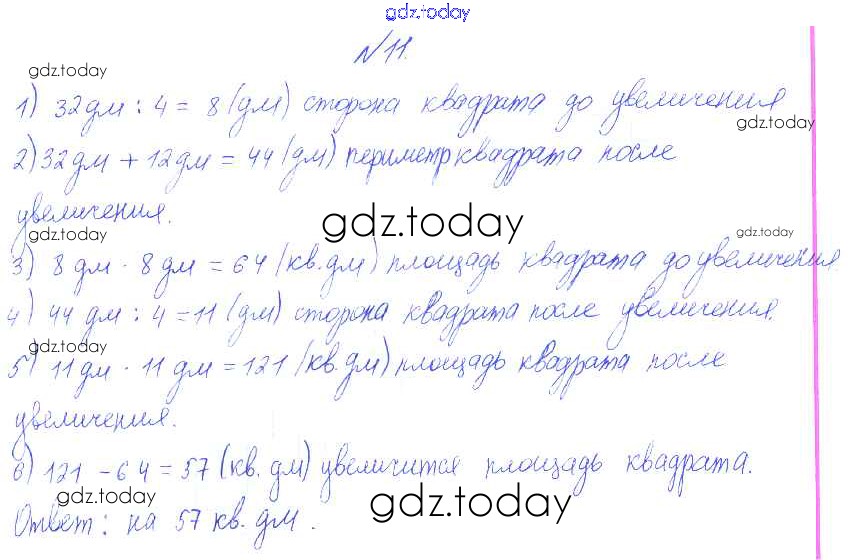 gdz.today
№11.
gdz.today
1) 32дм : 4 = 8 (дм) сторона квадрата до увеличения
gdz.today
2) 32дм + 12дм = 44 (дм) периметр квадрата после
увеличения.
gdz.today
gdz.today
gdz.today
3) 8 дм · 8 дм = 64 (кв. дм) площадь квадрата до увеличения
4) 44 дм : 4 = 11 (дм) сторона квадрата после увеличения.
gdz.today
5) 11 дм · 11 дм = 121 (кв. дм) площадь квадрата после
увеличения.
6) 121 - 64 = 57 (кв. дм) увеличится площадь квадрата.
gdz.today
gdz.today
Ответ: на 57 кв. дм.